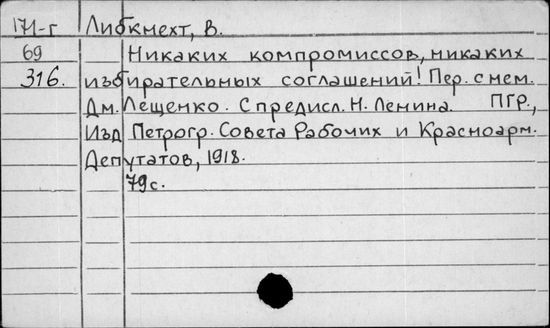 171-г Либкнехт, В.
69 Никаких компромиссов, никаких
316. избирательных соглашений! Пер. с нем.
Дм. Лещенко. С предисл. Н. Ленина. ПГР.,
Изд Петрогр. Совета Рабочих и Красноарм.
Депутатов, 1918.
79 с.